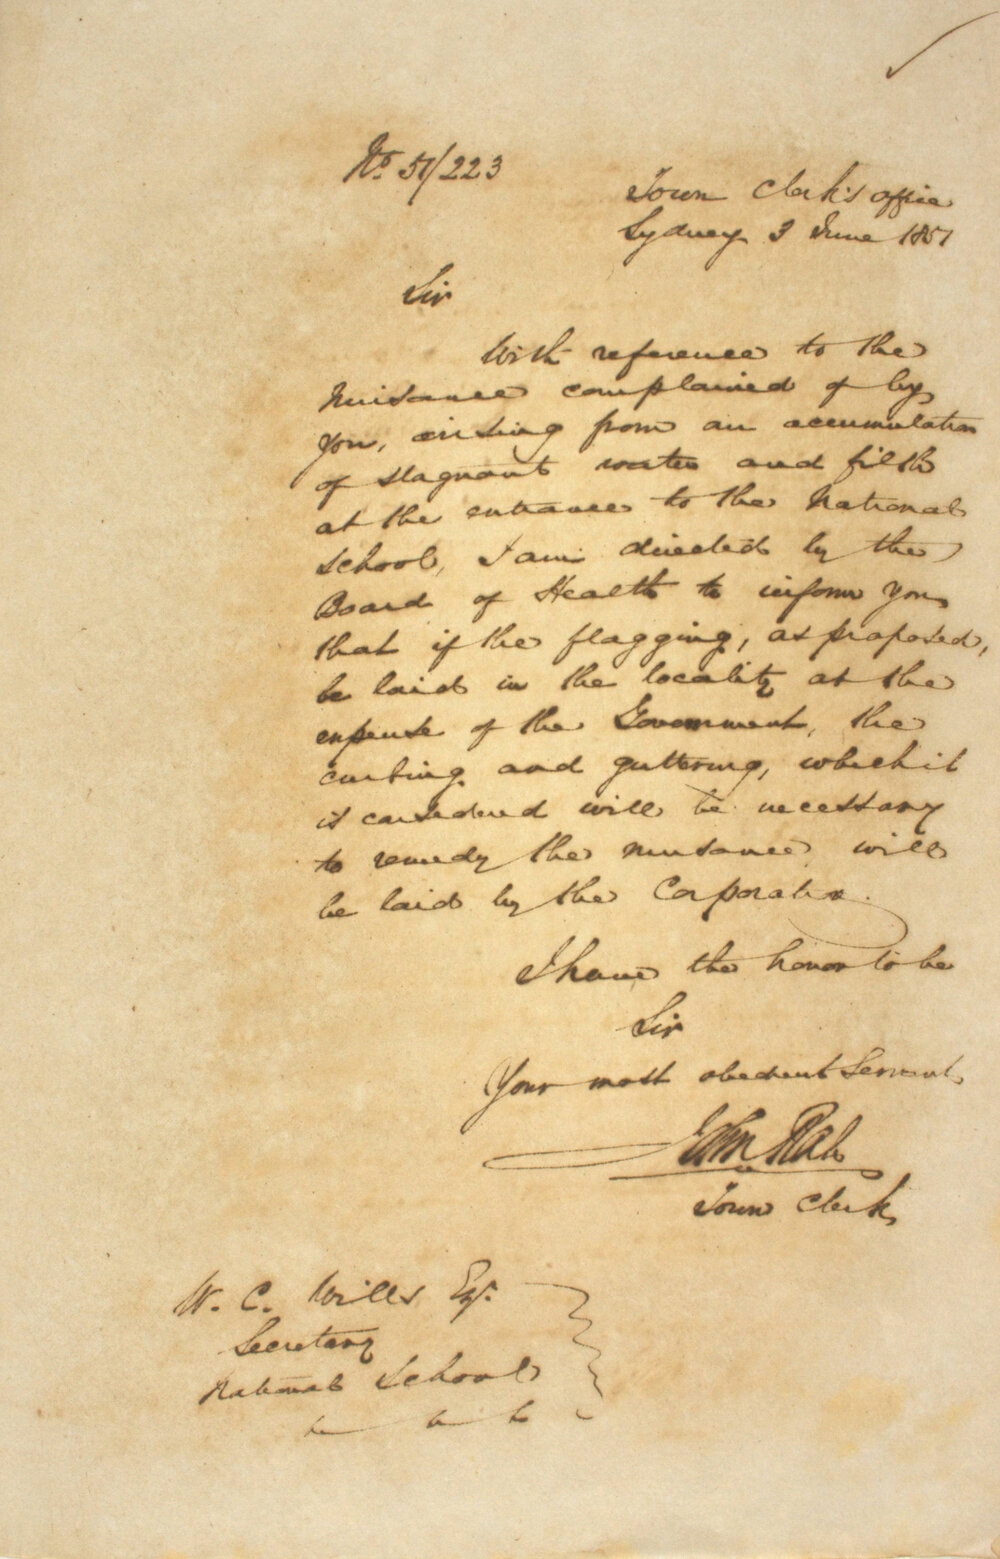 No 51/223
Town Clerk's office
Sydney 3 June 1851
Sir
With reference to the
Nuisance complained of by
you, arising from an accumulation
of stagnant water and filth
at the entrance to the National
School, I am directed by the
Board of Health to inform you
that if the flagging, as proposed,
be laid in the locality at the
expense of the Government, the
curbing and guttering, which it
is considered will be necessary
to remedy the nuisance will
be laid by the Corporation.
I have the honor to be
Sir
Your most obedient Servant
John
Town Clerk
W. C. Wills Esqr.
Secretary
National School